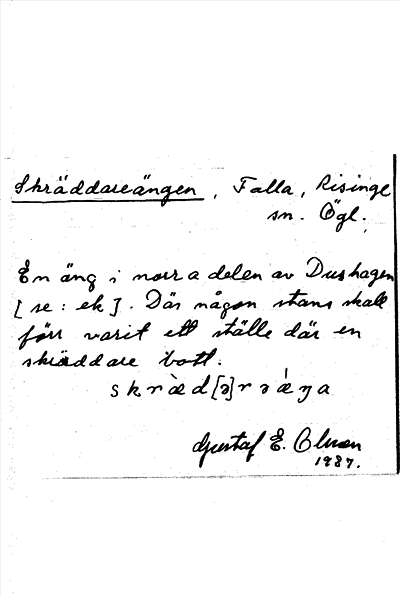 Skräddareängen, Falla, Risinge
sn. Ögl.
En äng i norra delen av Dushagen
[se: ek]. Där någon stans skall
förr varit ett ställe där en
skräddare bott.
skræ̀d[ə]rǝǽŋa
Gustaf E. Olsson
1987.